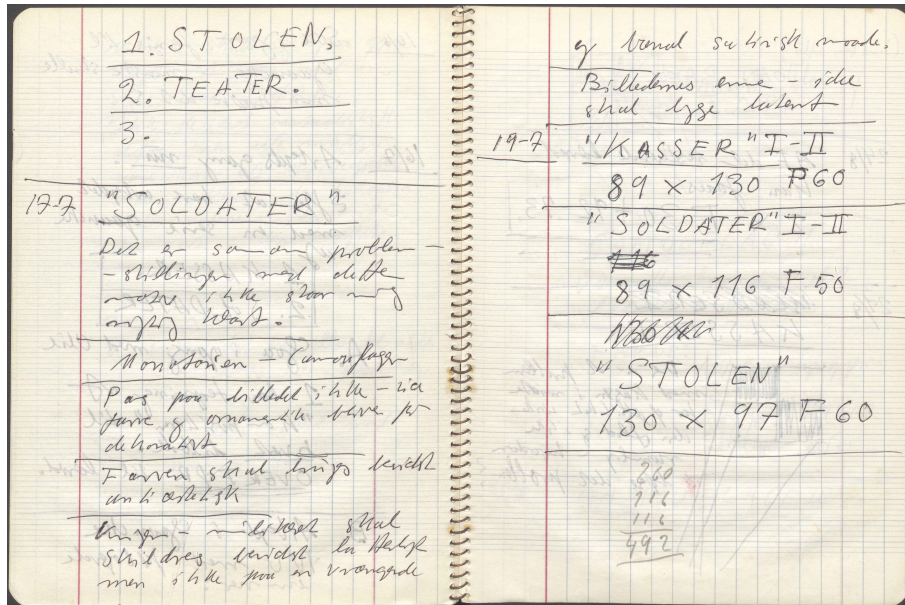 1. STOLEN.
2. TEATER.
3.
17-7 "SOLDATER"
Det er som om problem-
-stillingen med dette
motiv ikke staar mig
rigtig klart.
Monotonien - Camouflagen
Pas paa billedet ikke - via
farve og ornamentik bliver for
dekorativt
Farven skal bruges bevidst
antiæstetisk
Krigen - militæret skal
skildres bevidst latterligt
men ikke paa en vrængende
og banal satirisk maade.
Billedernes emne - ide
skal ligge latent
19-7 "KASSER" I-II
89 x 130 F60
"SOLDATER" I-II
116
89 x 116 F 50
"STOLEN"
130 x 97 F 60
260
116
116
492